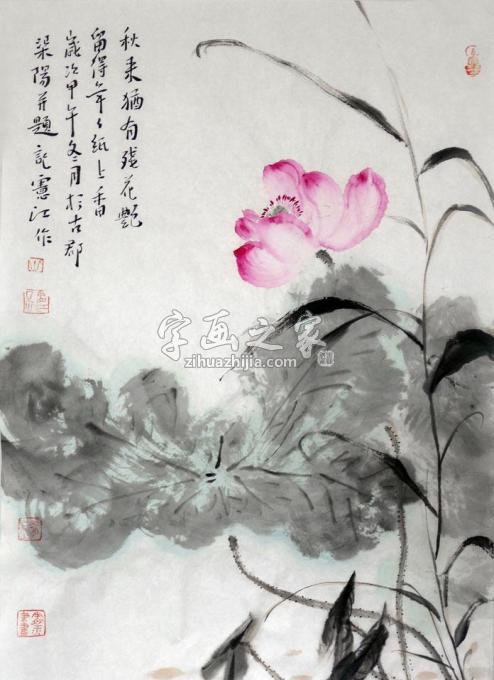 秋来犹有残花艳
留得年々纸上香
岁次甲午冬月于古郡
梁阳并题记宪江作
字画之家
zihuazhijia.com